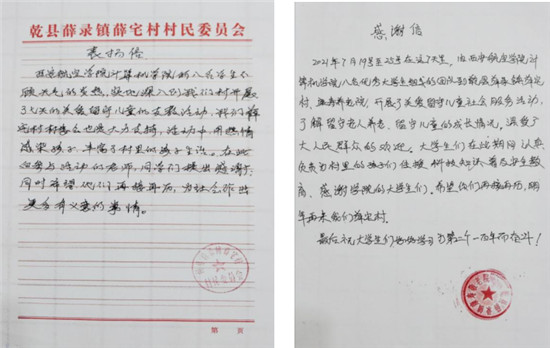 乾县薛录镇薛宅村村民委员会
表扬信
西安航空学院计算机学院的八名学生不
顾炎炎的炎热，深入到我们村开展
了七天的关爱留守儿童的支教活动，我们薛
宅村村委会也大力支持，活动中用热情
感染孩子，丰富了村里的孩子生活。在此
向参与活动的老师，同学们提出感谢，
同时希望他们再接再历，为社会作出
更多有义意的事情。
第 页
感谢信
2021年7月19号至25号在这7天里，由西安航空学院计
算机学院八名优秀大学生组成的团队到乾县薛录镇薛宅
村，开展了关爱留守儿童社会服务活动，
了解留守老人养老、留守儿童的成长情况。深受了
大人民群众的欢迎。大学生们在此期间认真
负责为村里的孩子们传授科技知识、普及安全教
育、感谢学院的大学生们。希望你们再接再历，明
年再来我们薛宅村。
最后祝大学生们好好学习为第二个一百年而奋斗！